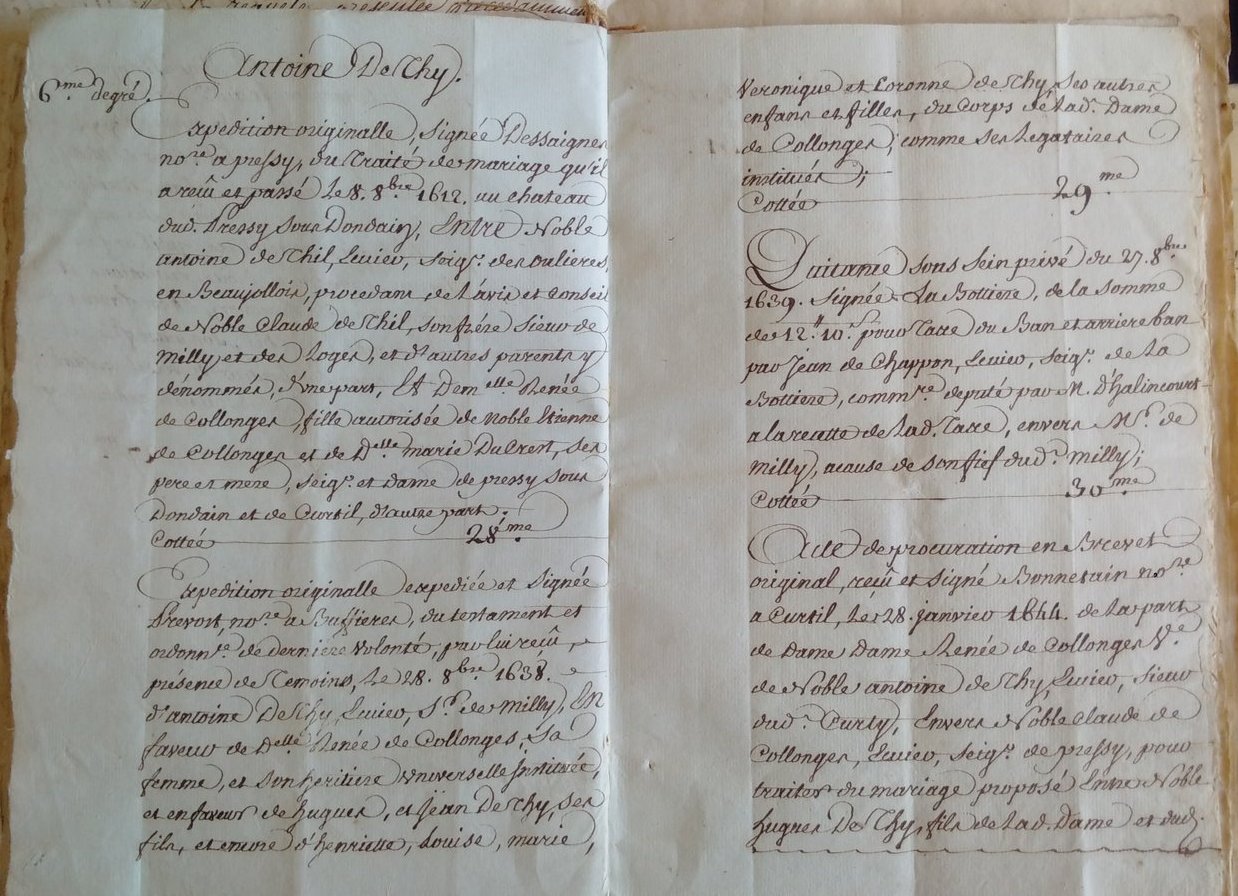 Antoine De Thy.
6.me degré.
Expedition originalle, signée Dessaignes
no.re a pressy, du Traité de mariage qu'il
a reçû et passé Le 8. 8.bre 1612. au chateau
dud. Pressy sous Dondain, Entre Noble
antoine de Thil, Ecuier, seig.r des oulieres,
en Beaujollois, procedant de L'avis et conseil
de Noble Claude de Thil, son frére sieur de
Milly et des Loges, et d'autres parents y
dénommés, d'vne part, Et Dem.elle Renée
de Collonges, fille autorisée de Noble Etienne
de Collonges et de D.elle marie DuCrest, ses
pere et mere, seig.r et dame de pressy sous
Dondain et de Curtil, d'autre part.
Cottée 28éme.
Expedition originalle expediée et signée
Prevost, no.re a Buffieres, du testament et
ordonn.ce de derniere volonté, par lui reçû,
présence de Temoins, Le 28. 8.bre 1638.
d'antoine De Thy, Ecuier, S.r de Milly, En
faveur de D.elle Renée de Collonges, Sa
femme, et son heritiere vniverselle Instituée,
et en faveur de hugues, et Jean De Thy, ses
fils, et encore d'henriette, Louise, marie,
Veronique et Coronne de Thy, ses autres
enfans et filles, du Corps de Lad. Dame
de Collonges, comme ses Legataires
institués;
Cottée 29.me
Quitance sous sein privé du 27. 8.bre
1639. signée La Bottiere, de la somme
de 12.tt 10.s pour Taxe du Ban et arriere ban
par Jean de Chappon, Ecuier, seig.r de La
Bottiere, comm.re deputé par M. d'halincourt
a la recette de Lad. Taxe, envers M.r de
Milly, acause de son fief dud. Milly;
Cottée 30.me
Acte de procuration en Brevet
original, reçû et signé Bonnetain no.re
a Curtil, Le 28. janvier 1644. de La part
de Dame Dame Renée de Collonges V.e
de Noble antoine de Thy, Ecuier, sieur
dud. Curty, Envers Noble Claude de
Collonges, Ecuier, seig.r de pressy, pour
traiter du mariage proposé Entre Noble
hugues De Thy, fils de Lad. Dame et dud.